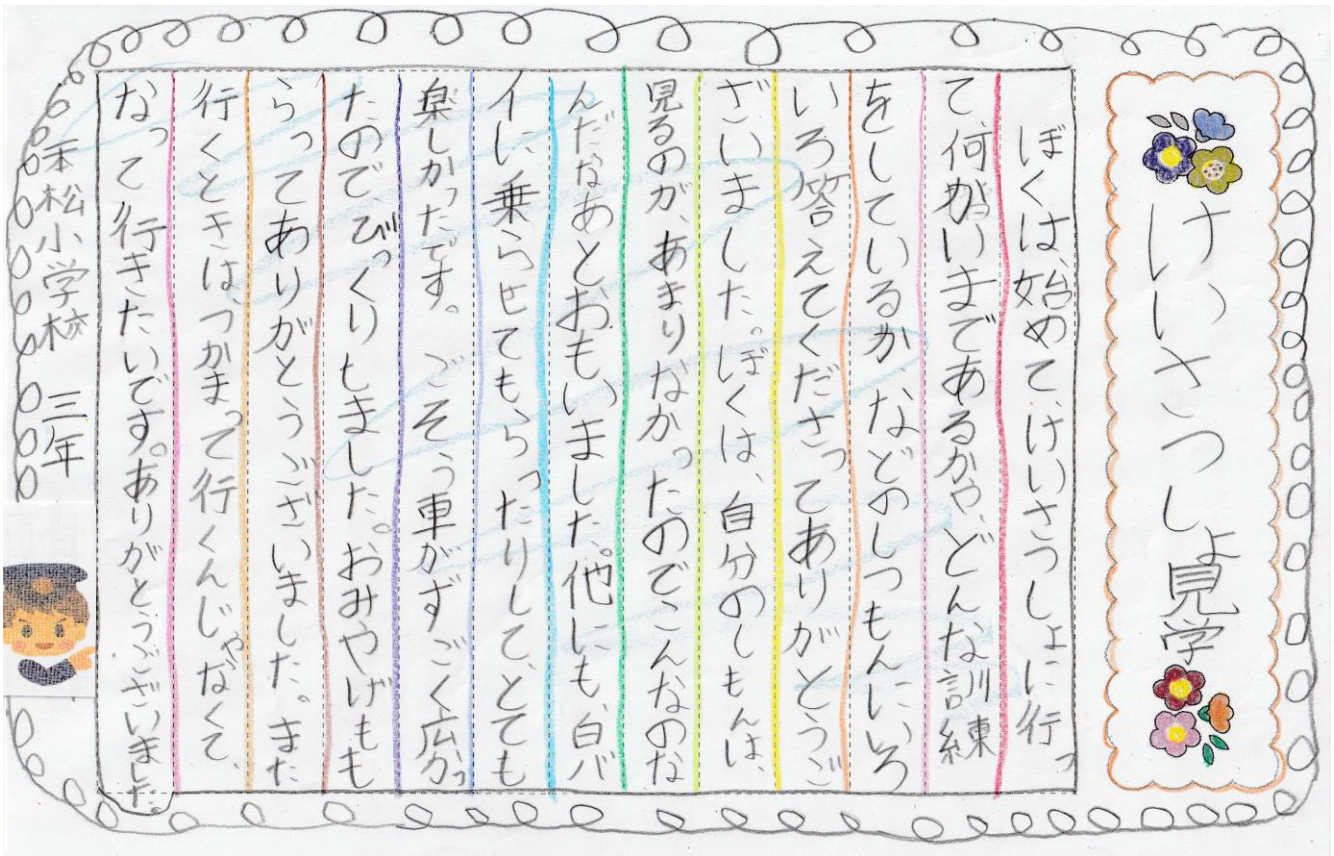 けいさつしょ見学
ぼくは、始めて、けいさつしょに行っ
て、何がいまであるかや、どんな訓練
をしているか などのしつもんにいろ
いろ答えてくださってありがとうご
ざいました。ぼくは、自分のしもんは、
見るのが、あまりなかったのでこんなのな
んだなあとおもいました。他にも、白バ
イに、乗らせてもらったりして、とても
楽しかったです。 ごそう車がすごく広かっ
たのでびっくりしました。おみやげもも
らってありがとうございました。また
行くときはつかまって行くんじゃなくて、
なって行きたいです。ありがとうございました。
本松小学校 三年